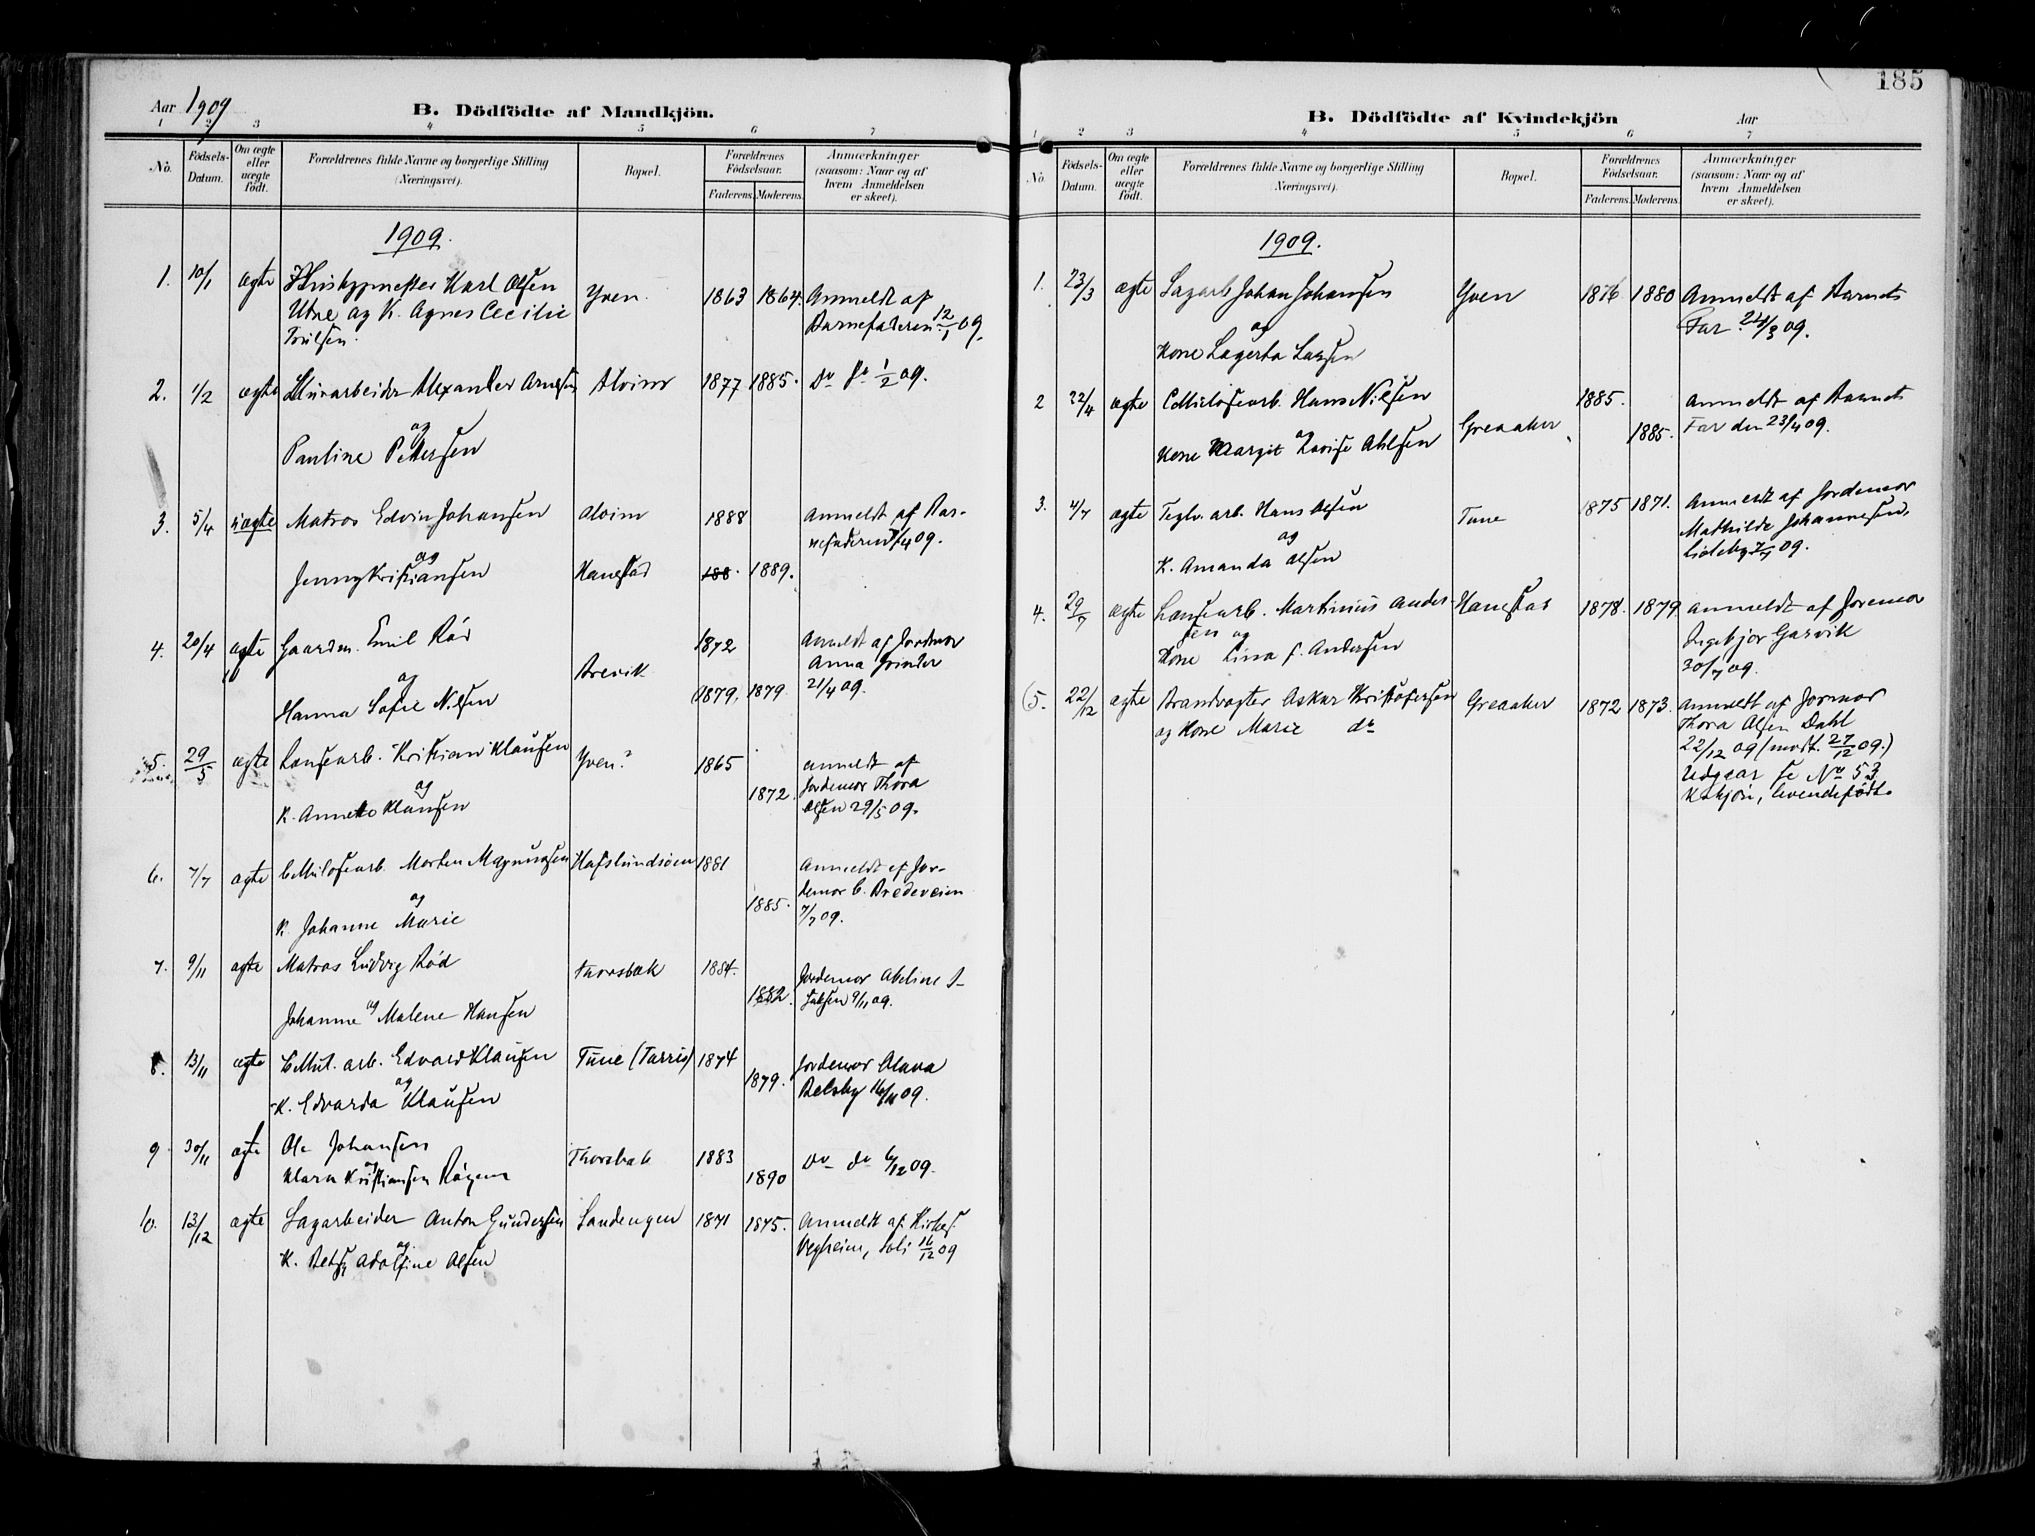 185
Aar 1909
B. Dödfödte af Mandkjön.
1 2 3 4 5 6 7
No.
Födsels-Datum.
Om ægte eller uægte födt.
Forældrenes fulde Navne og borgerlige Stilling (Næringsvei).
Bopæl.
Forældrenes Födselsaar.
Faderens. Moderens.
Anmærkninger (saasom: Naar og af hvem Anmeldelsen er skeet).
1909.
1. 10/1 ægte Karl Olsen
Utne og K. Agnes Cecilie
Yven. 1863 1864. Anmeldt af
Barnefaderen 12/1 09.
2. 1/2 ægte Murarbeider Alexander Arnesen
og
Pauline Pettersen
Alvim 1877 1885. Do do 1/2 09.
3. 5/4 uægte Matros Edvin Johansen
og
Jenny Kristiansen
Alvim 1888
Hanestad 188 1889.
Anmeldt af Bar-
nefaderen 7/4 09.
4. 20/4 ægte Gaardm. Emil Röd
og
Hanna Sofie Nilsen
Brevik 1872
1879, 1879
Anmeldt af Jordmor
Anna Grinder
21/4 09.
5. 29/5 ægte Lansearb. Kristian Klausen
og
K. Annette Klausen
Yven? 1865
1872.
anmeldt af
Jordemor Thora
Olsen 29/5 09.
6. 7/7 ægte Morten Magnussen
og
K. Johanne Marie
Hafslundsöen 1881
1885.
Anmeldt af Jor-
demor B. Bredeveien
7/7 09.
7. 9/11 ægte Matros Ludvig Röd
og
Johanne Malene Hansen
Thorsbæk 1884.
1882.
Jordemor Abeline I-
saksen 9/11 09.
8. 13/11 ægte arb. Edvard Klausen
og
K. Edvarda Klausen
Tune (Tarris) 1874
1879.
Jordemor Olava
Delsby 16/11 09.
9. 30/11 ægte Ole Johansen
og
Klara Kristiansen
Thorsbæk 1883
1890
Do do 6/12 09.
10. 13/12 ægte Sagarbeider Anton Gundersen
og
K. Betsy Adolfine Olsen
Sandengen 1871 1875.
Anmeldt af Kirkes.
Vegheim, Soli 16/12 09
B. Dödfödte af Kvindekjön
Aar
1 2 3 4 5 6 7
No.
Födsels-Datum.
Om ægte eller uægte födt.
Forældrenes fulde Navne og borgerlige Stilling (Næringsvei).
Bopæl.
Forældrenes Födselsaar.
Faderens. Moderens.
Anmærkninger (saasom: Naar og af hvem Anmeldelsen er skeet).
1909.
1. 23/3 ægte Sagarb. Johan Johansen
og
Kone Lagerta Larsen
Yven 1876 1880 Anmeldt af Barnets
Far 24/3 09.
2 22/4 ægte Hans Nilsen
og
Kone Margit Lovise Ahlsen
Greaaker 1885.
1885.
Anmeldt af Barnets
Far den 23/4 09.
3. 4/7 ægte Teglv. arb. Hans Olsen
og
K. Amanda Olsen
Tune 1875 1871.
Anmeldt af Jordemor
Mathilde Johannesen,
Lideby 7/7 09.
4. 29/7 ægte Lansearb. Martinius Ander-
sen og
Kone Lina f. Andersen
Hanestad 1878. 1879
Anmeldt af Joremor
Ingebjor Garvik
30/7 09.
(5. 22/12 ægte Brandvagter Oskar Kristofersen
og Kone Marie do
Greaaker 1872 1873.
Anmeldt af Jormor
Thora Olsen Dahl
22/12 09 (modt. 27/12 09.)
Udgaar se No 53
Kvkjön, levendefödte